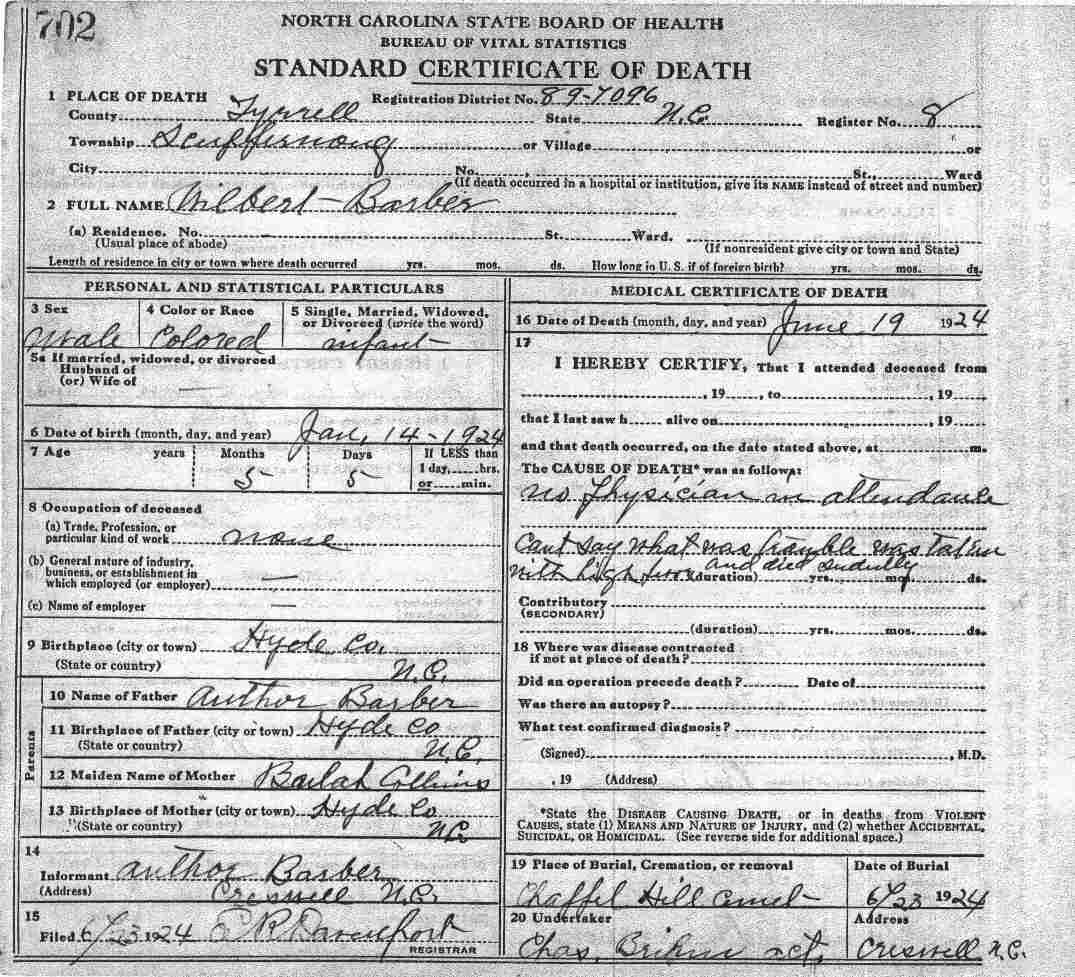 702
NORTH CAROLINA STATE BOARD OF HEALTH
BUREAU OF VITAL STATISTICS
STANDARD CERTIFICATE OF DEATH
1 PLACE OF DEATH Registration District No. 89-7096
County Tyrrell State N.C. Register No. 8
Township Scuppernong or Village or
City No. , St., Ward
(If death occurred in a hospital or institution, give its NAME instead of street and number)
2 FULL NAME Wilbert Barber
(a) Residence. No. St. Ward.
(Usual place of abode) (If nonresident give city or town and State)
Length of residence in city or town where death occurred yrs. mos. ds. How long in U. S. if of foreign birth? yrs. mos. ds.
PERSONAL AND STATISTICAL PARTICULARS
3 Sex 4 Color or Race 5 Single, Married, Widowed,
or Divorced (write the word)
Male Colored infant
5a If married, widowed, or divorced
Husband of
(or) Wife of
6 Date of birth (month, day, and year) Jan, 14-1924
7 Age years Months Days If LESS than
1 day, hrs.
5 5 or min.
8 Occupation of deceased
(a) Trade, Profession, or
particular kind of work none
(b) General nature of industry,
business, or establishment in
which employed (or employer)
(c) Name of employer
9 Birthplace (city or town) Hyde Co.
(State or country) N.C.
Parents
10 Name of Father Author Barber
11 Birthplace of Father (city or town) Hyde Co
(State or country) N.C.
12 Maiden Name of Mother Collins
13 Birthplace of Mother (city or town) Hyde Co
(State or country) N.C
14
Informant Author Barber
(Address) Creswell N.C.
15
Filed 6/23 1924 Davenport
REGISTRAR
MEDICAL CERTIFICATE OF DEATH
16 Date of Death (month, day, and year) June 19 1924
17
I HEREBY CERTIFY, That I attended deceased from
, 19 , to , 19
that I last saw h alive on , 19
and that death occurred, on the date stated above, at m.
The CAUSE OF DEATH* was as follows:
no Physician in attendance
Cant say what was trouble was taken
with high and died
(duration) yrs. mos. ds.
Contributory
(SECONDARY)
(duration) yrs. mos. ds.
18 Where was disease contracted
if not at place of death?
Did an operation precede death? Date of
Was there an autopsy?
What test confirmed diagnosis?
(Signed) , M.D.
, 19 (Address)
*State the DISEASE CAUSING DEATH, or in deaths from VIOLENT
CAUSES, state (1) MEANS AND NATURE OF INJURY, and (2) whether ACCIDENTAL,
SUICIDAL, OR HOMICIDAL. (See reverse side for additional space.)
19 Place of Burial, Cremation, or removal Date of Burial
Chappel Hill 6/23 1924
20 Undertaker Address
Chas. Creswell N.C.